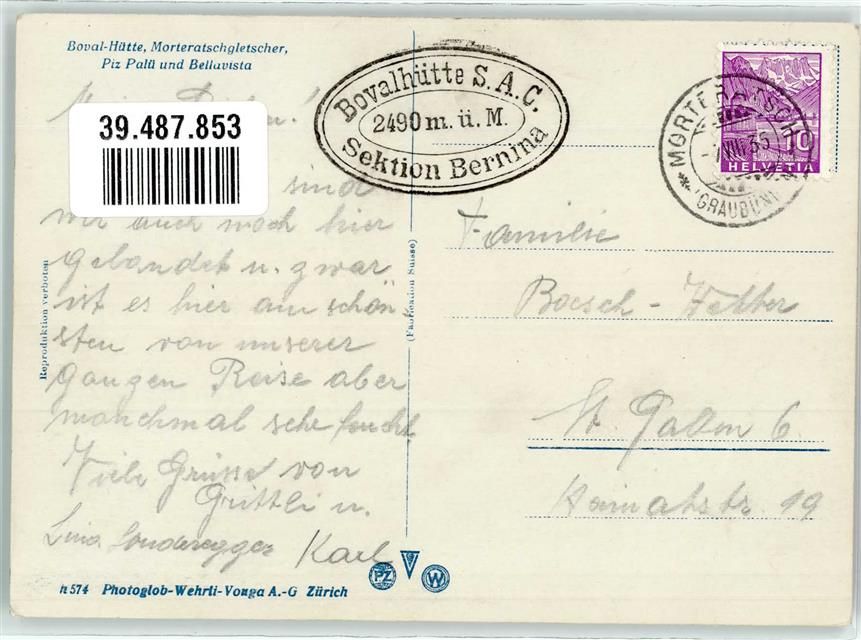 Boval-Hütte, Morteratschgletscher,
Piz Palü und Bellavista
39.487.853
Bovalhütte S.A.C.
2490 m. ü. M.
Sektion Bernina
MORTERATSCH
VIII 35
(GRAUBÜN
10
HELVETIA
sind
wir auch noch hier
gelandet u. zwar
ist es hier am schön-
sten von unserer
ganzen Reise aber
manchmal sehr feucht
Viele Grüsse von
Grittli u.
Lina Sonderegger Karl
Reproduktion verboten
(Fabrication Suisse)
Familie
Boesch-
St. Gallen 6
Haimatstr. 19
n 574 Photoglob-Wehrli-Vouga A.-G Zürich
PZ
W